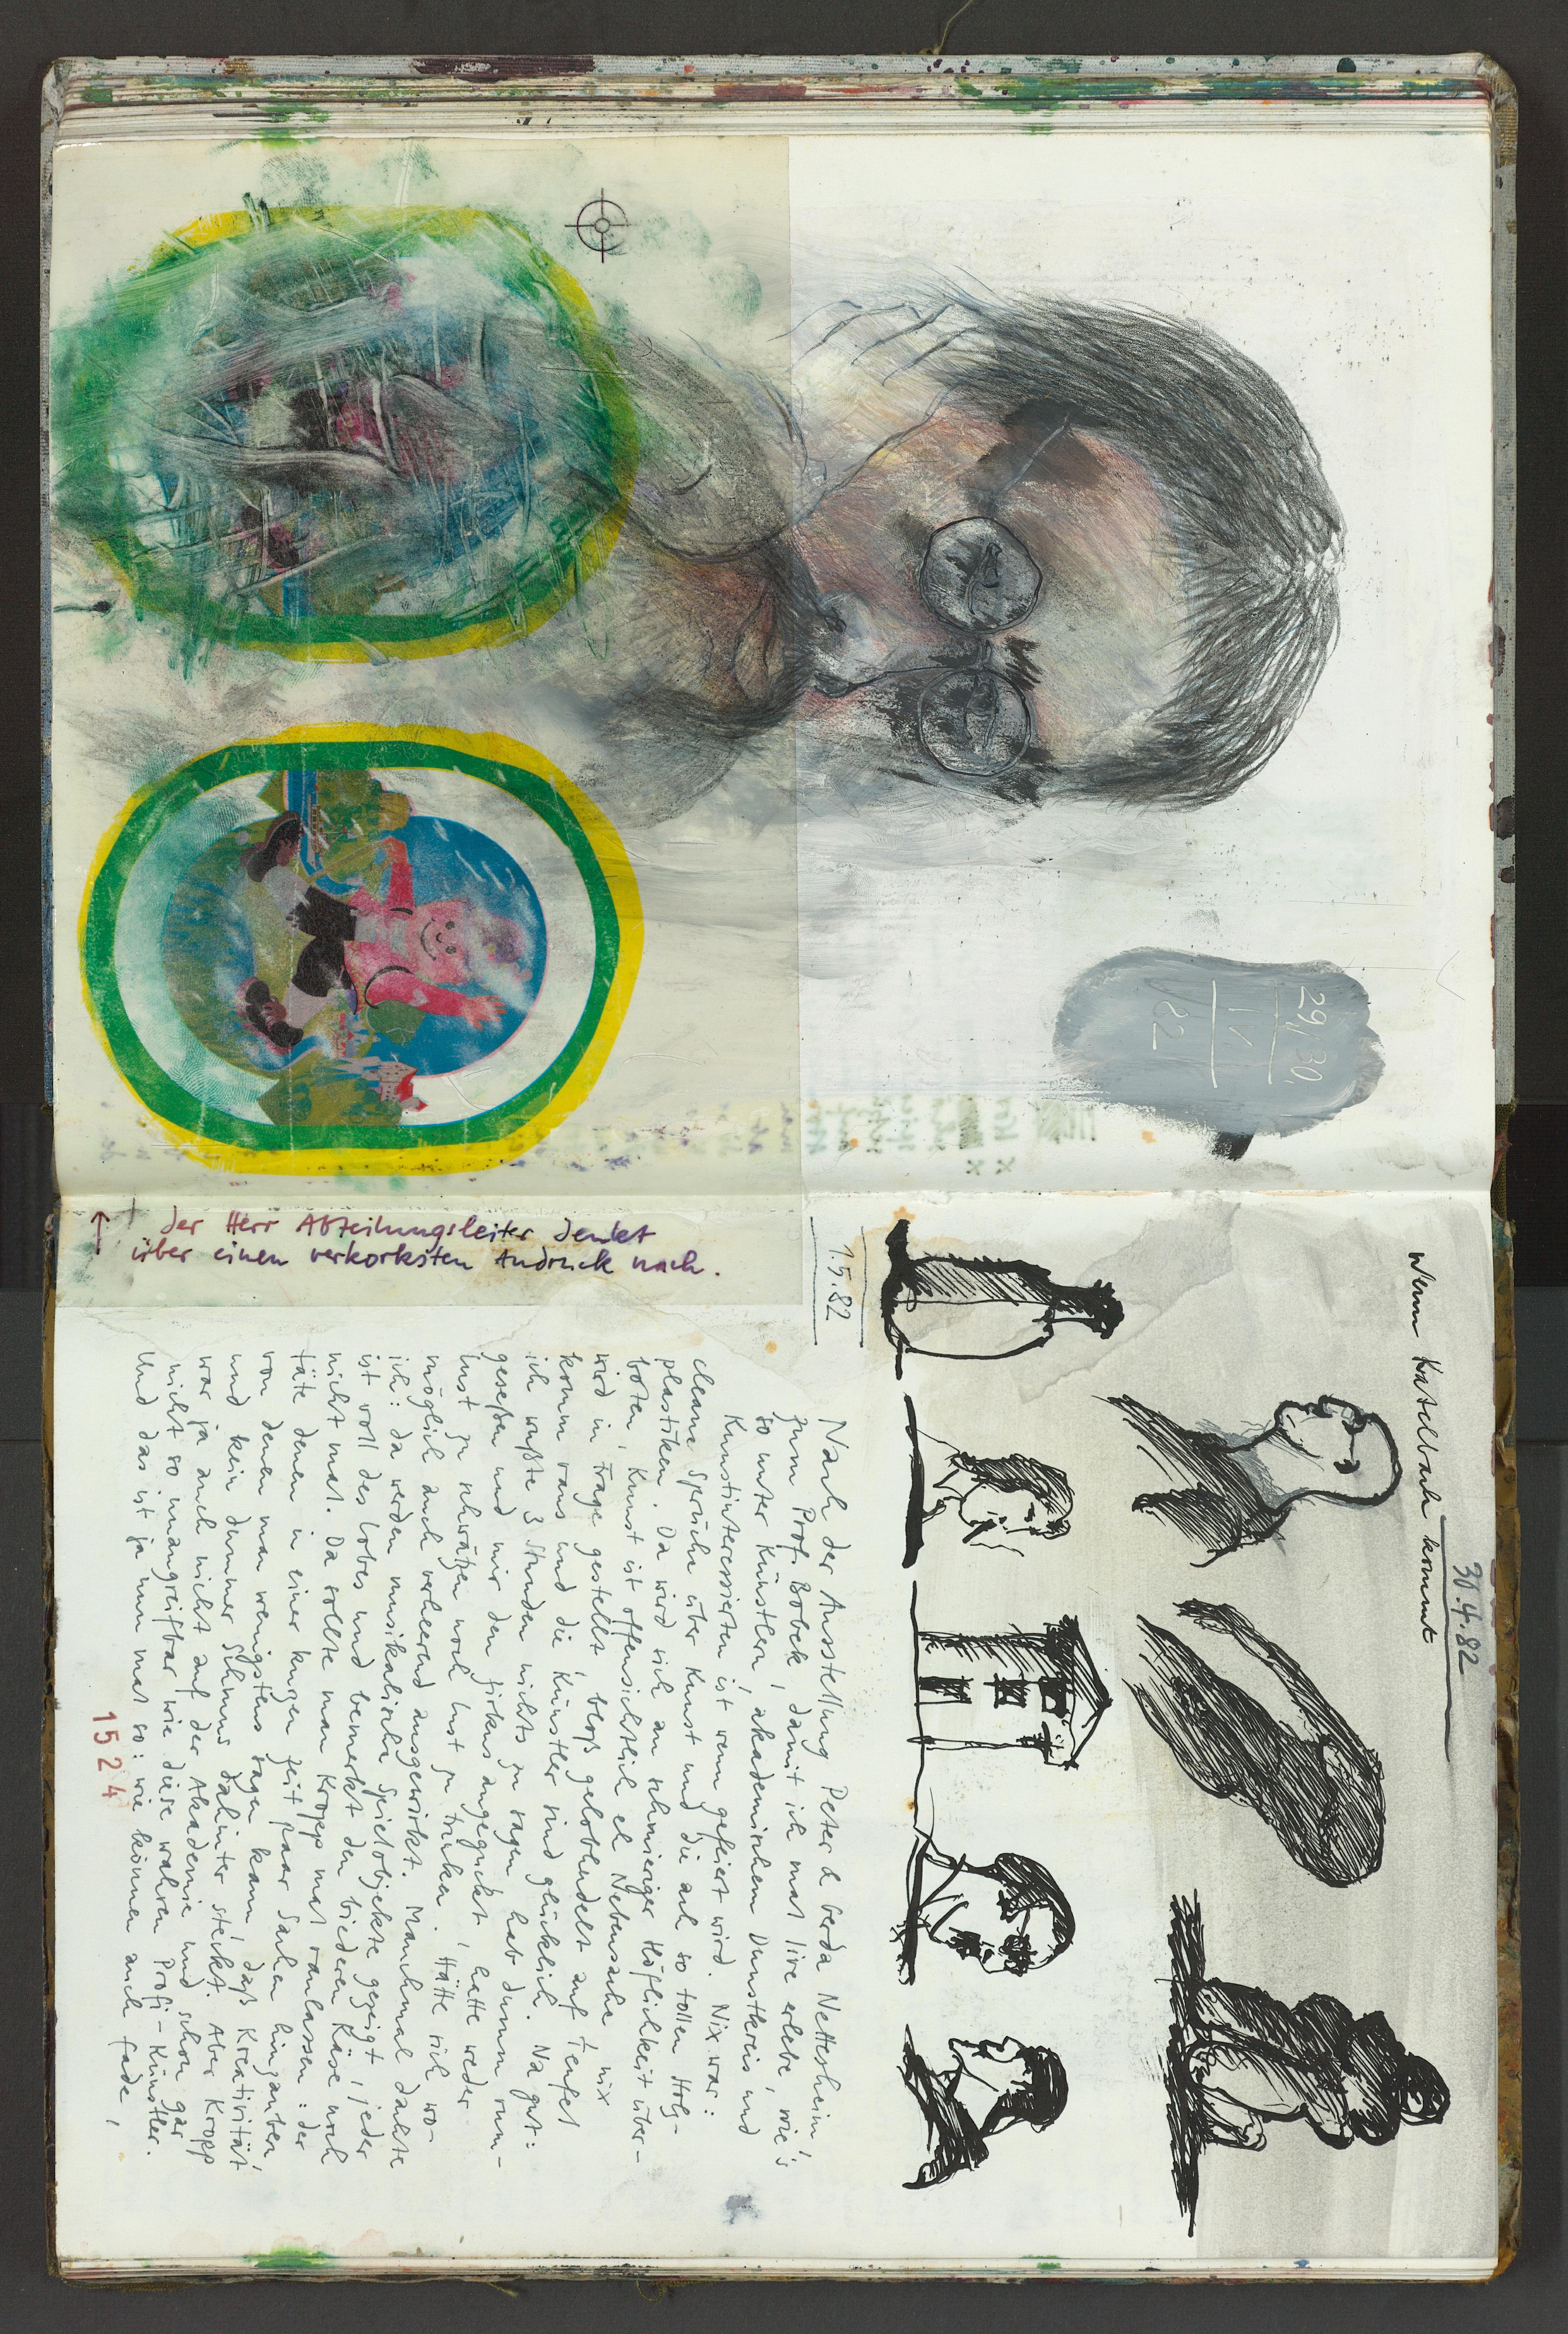 29./30.
IV
82
↑ der Herr Abteilungsleiter denkt
über einen verkorksten Andruck nach.
30.4.82
Wenn Katelbach kommt
1.5.82
Nach der Ausstellung Peter & Gerda Nettesheim,
zum Prof. Bobek, damit ich mal live erlebe, wie's
so unter Künstlern, akademischem Dunstkreis und
Kunstinteressierten ist wenn gefeiert wird. Nix war:
cleane Sprüche über Kunst und die ach so tollen Holz-
plastiken. Da wird sich an schmieriger Höflichkeit über-
boten, Kunst ist offensichtlich eh Nebensache, nix
wird in Frage gestellt, bloß gelobhudelt auf Teufel
komm raus und die Künstler sind glücklich. Na gut:
ich wußte 3 Stunden nichts zu sagen, hab dumm rum-
gesessen und mir den Zirkus angeguckt, hatte weder
Lust zu schwätzen noch Lust zu trinken. Hätte sich wo-
möglich auch verheerend ausgewirkt. Manchmal dachte
ich: da werden musikalische Spielobjekte gezeigt, jeder
ist voll des Lobes und bemerkt den biederen Käse noch
nicht mal. Da sollte man Kropp mal ranlassen: der
täte denen in einer kurzen Zeit paar Sachen hinzaubern,
von denen man wenigstens sagen kann, daß Kreativität
und kein dummer Schmus dahinter steckt. Aber Kropp
war ja auch nicht auf der Akademie und schon gar
nicht so unangreifbar wie diese wahren Profi-Künstler.
Und das ist ja nun mal so: wie können auch fade,
1524